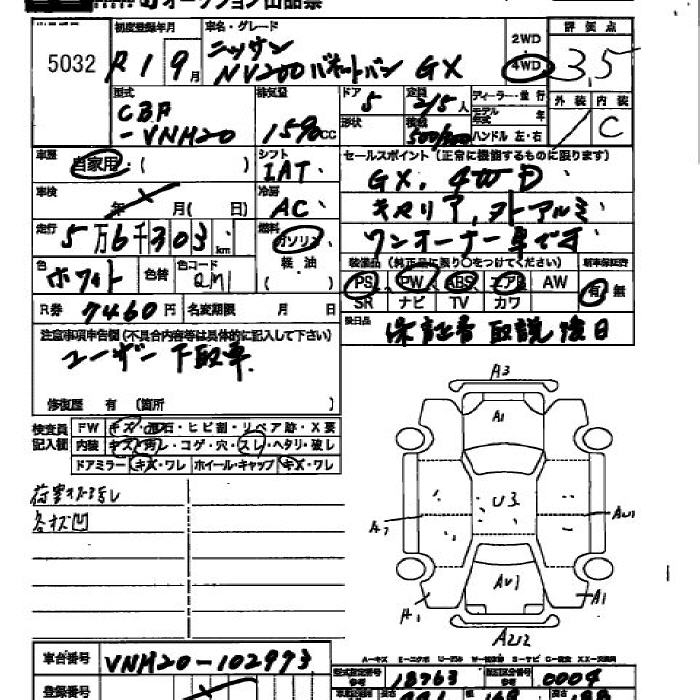 オークション出品票
5032
初度登録年月
R1 9月
車名・グレード
ニッサン
NV200バネットバン GX
2WD
4WD
評価点
3.5
型式
CBF
-VNM20
排気量
1590cc
ドア
5
定員
2/5人
ディーラー・並行
モデル年式 年
形状
積載
500/300
ハンドル 左・右
外装 内装
C
車歴
自家用・( )
シフト
IAT
セールスポイント(正常に機能するものに限ります)
GX. 4WD
キセリア, 外アルミ
ワンオーナー車です
車検
年 月( 日)
冷房
AC
走行
5万6千303km
燃料
ガソリン
軽油
色
ホワイト
色替
色コード
QM1
装備品(純正品に限り○をつけてください)
新車保証書
PS PW ABS エアB AW
有 無
SR ナビ TV カワ
R券 7460円
名変期限 月 日
後日品
保証書 取説 後日
注意事項申告欄(不具合内容等は具体的に記入して下さい)
ユーザー下取車
修復歴 有 (箇所 )
検査員
記入欄
FW キズ・飛石・ヒビ割・リペア跡・X要
内装 キズ・汚レ・コゲ・穴・スレ・ヘタリ・破レ
ドアミラー キズ・ワレ ホイール・キャップ キズ・ワレ
各キズ凹
A3
A1
U3
AU1
AU1
A1
A1
車台番号
VNM20-102973
型式指定番号
18763
0004
登録番号